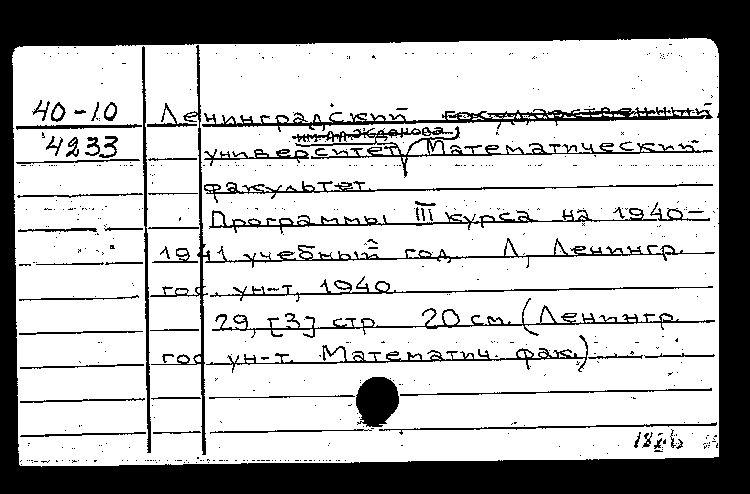 40-10 Ленинградский государственный
им. А.А. Жданова
4233 университет, Математический
факультет.
Программы III курса на 1940-
1941 учебный год. Л., Ленингр.
гос. ун-т, 1940.
29, [3] стр. 20 см. (Ленингр.
гос. ун-т. Математич. фак.)